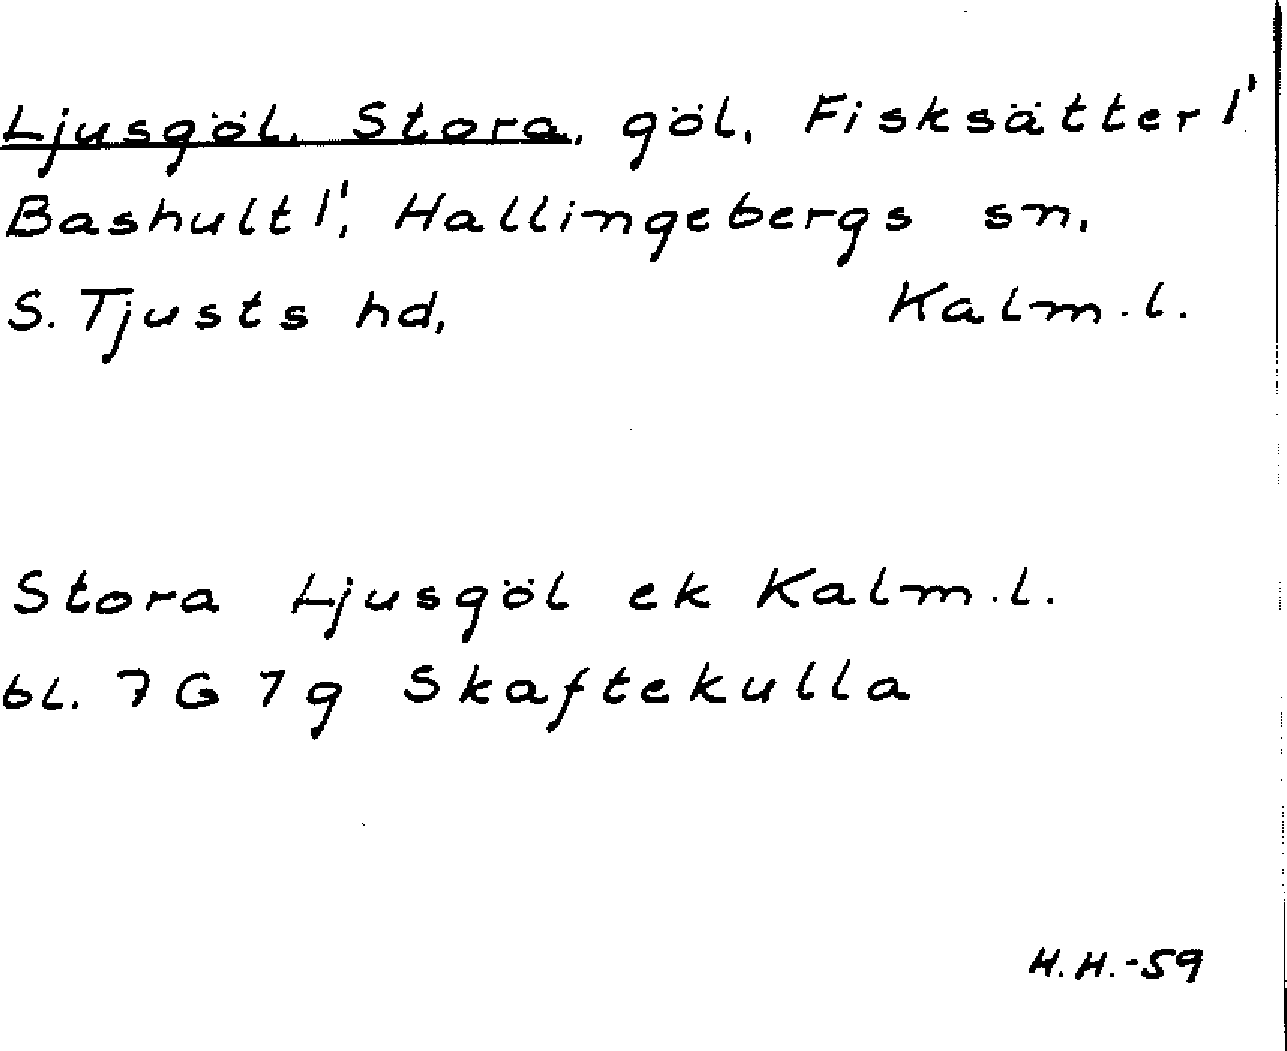 Ljusgöl, Stora, göl, Fisksätter 1¹
Bashult 1¹, Hallingebergs sn,
S. Tjusts hd, Kalm. l.
Stora Ljusgöl ek Kalm. l.
bl. 7 G 7 g Skaftekulla
H.H.-59